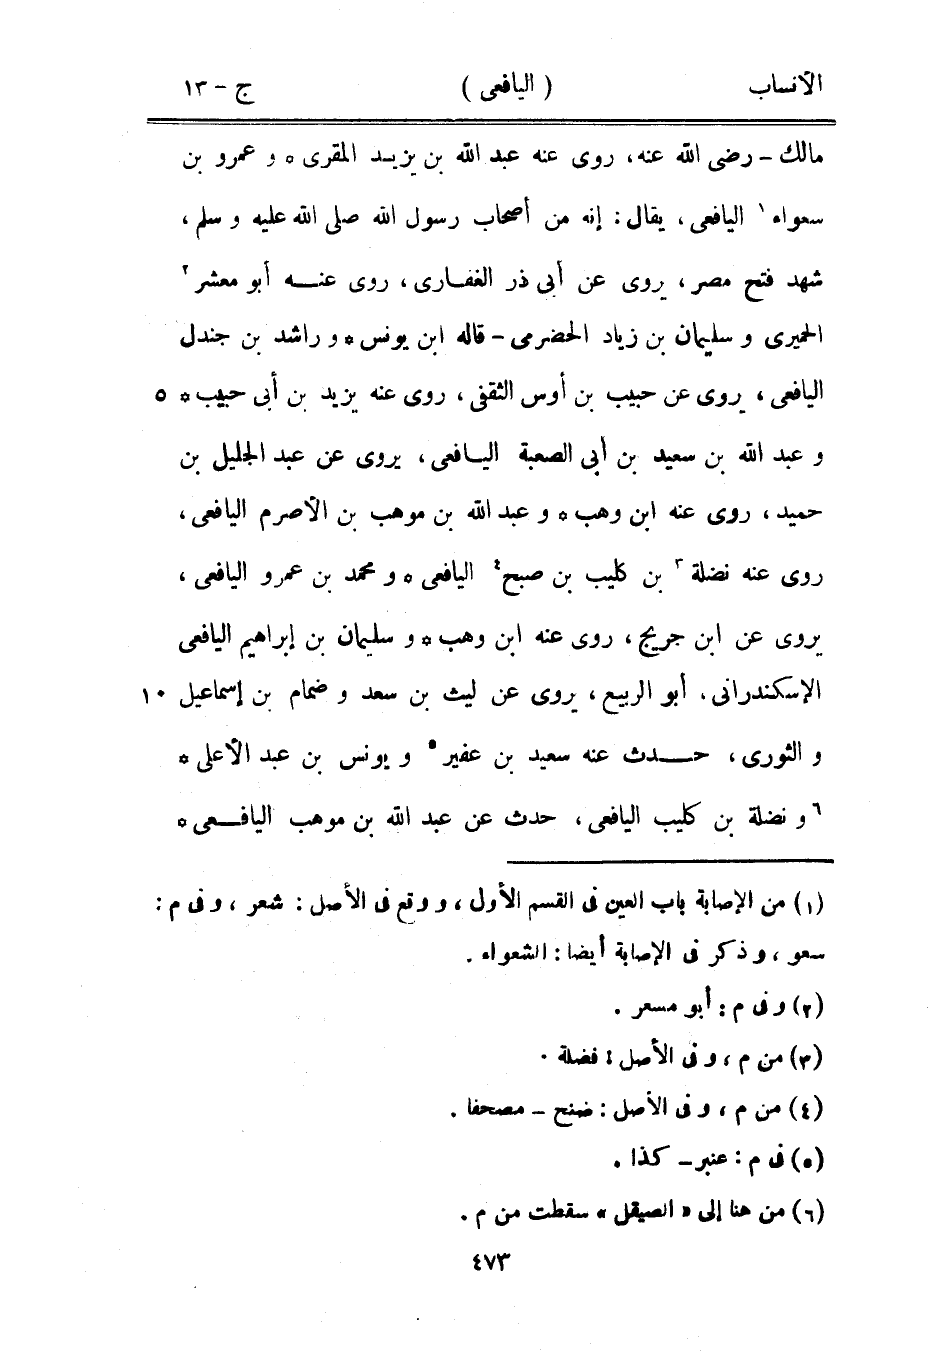 الأنساب ( اليافعى ) ج - ١٣
مالك - رضى الله عنه، روى عنه عبد الله بن يزيد المقرى * و عمرو بن
سعواء ١ اليافعى، يقال : إنه من أصحاب رسول الله صلى الله عليه و سلم،
شهد فتح مصر، يروى عن أبى ذر الغفارى، روى عنه أبو معشر ٢
الحميرى و سليمان بن زياد الحضرمى - قاله ابن يونس * و راشد بن جندل
اليافعى، يروى عن حبيب بن أوس الثقفى، روى عنه يزيد بن أبى حبيب * ٥
و عبد الله بن سعيد بن أبى الصعبة اليافعى، يروى عن عبد الجليل بن
حميد، روى عنه ابن وهب * و عبد الله بن موهب بن الأصرم اليافعى،
روى عنه نضلة ٣ بن كليب بن صبح ٤ اليافعى * و محمد بن عمرو اليافعى،
يروى عن ابن جريج، روى عنه ابن وهب * و سليمان بن إبراهيم اليافعى
الإسكندرانى، أبو الربيع، يروى عن ليث بن سعد و ضمام بن إسماعيل ١٠
و الثورى، حدث عنه سعيد بن عفير ٥ و يونس بن عبد الأعلى *
٦ و نضلة بن كليب اليافعى، حدث عن عبد الله بن موهب اليافعى *
(١) من الإصابة باب العين فى القسم الأول، و وقع فى الأصل : شعر، و فى م :
سعو، و ذكر فى الإصابة أيضا : الشعواء .
(٢) و فى م : أبو مسعر .
(٣) من م، و فى الأصل : فضلة .
(٤) من م، و فى الأصل : ضنح - مصحفا .
(٥) فى م : عنبر - كذا .
(٦) من هنا إلى « الصيقل » سقطت من م .
٤٧٣